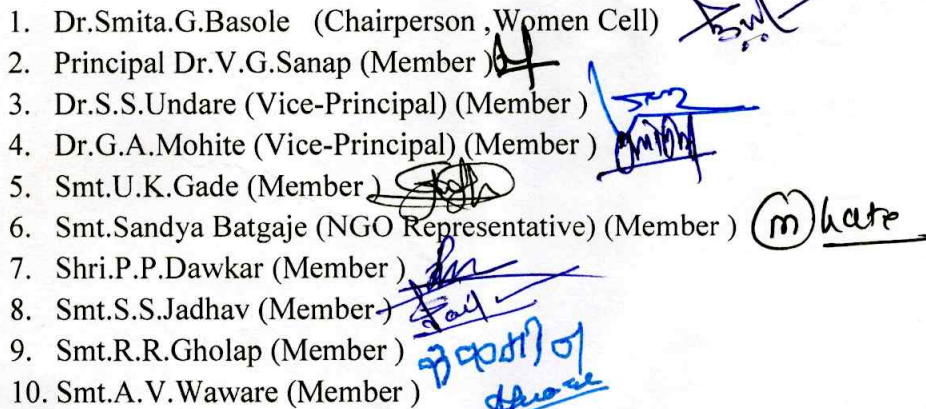 1. Dr.Smita.G.Basole (Chairperson ,Women Cell)
2. Principal Dr.V.G.Sanap (Member )
3. Dr.S.S.Undare (Vice-Principal) (Member )
4. Dr.G.A.Mohite (Vice-Principal) (Member )
5. Smt.U.K.Gade (Member )
6. Smt.Sandya Batgaje (NGO Representative) (Member )
7. Shri.P.P.Dawkar (Member )
8. Smt.S.S.Jadhav (Member
9. Smt.R.R.Gholap (Member )
10. Smt.A.V.Waware (Member )